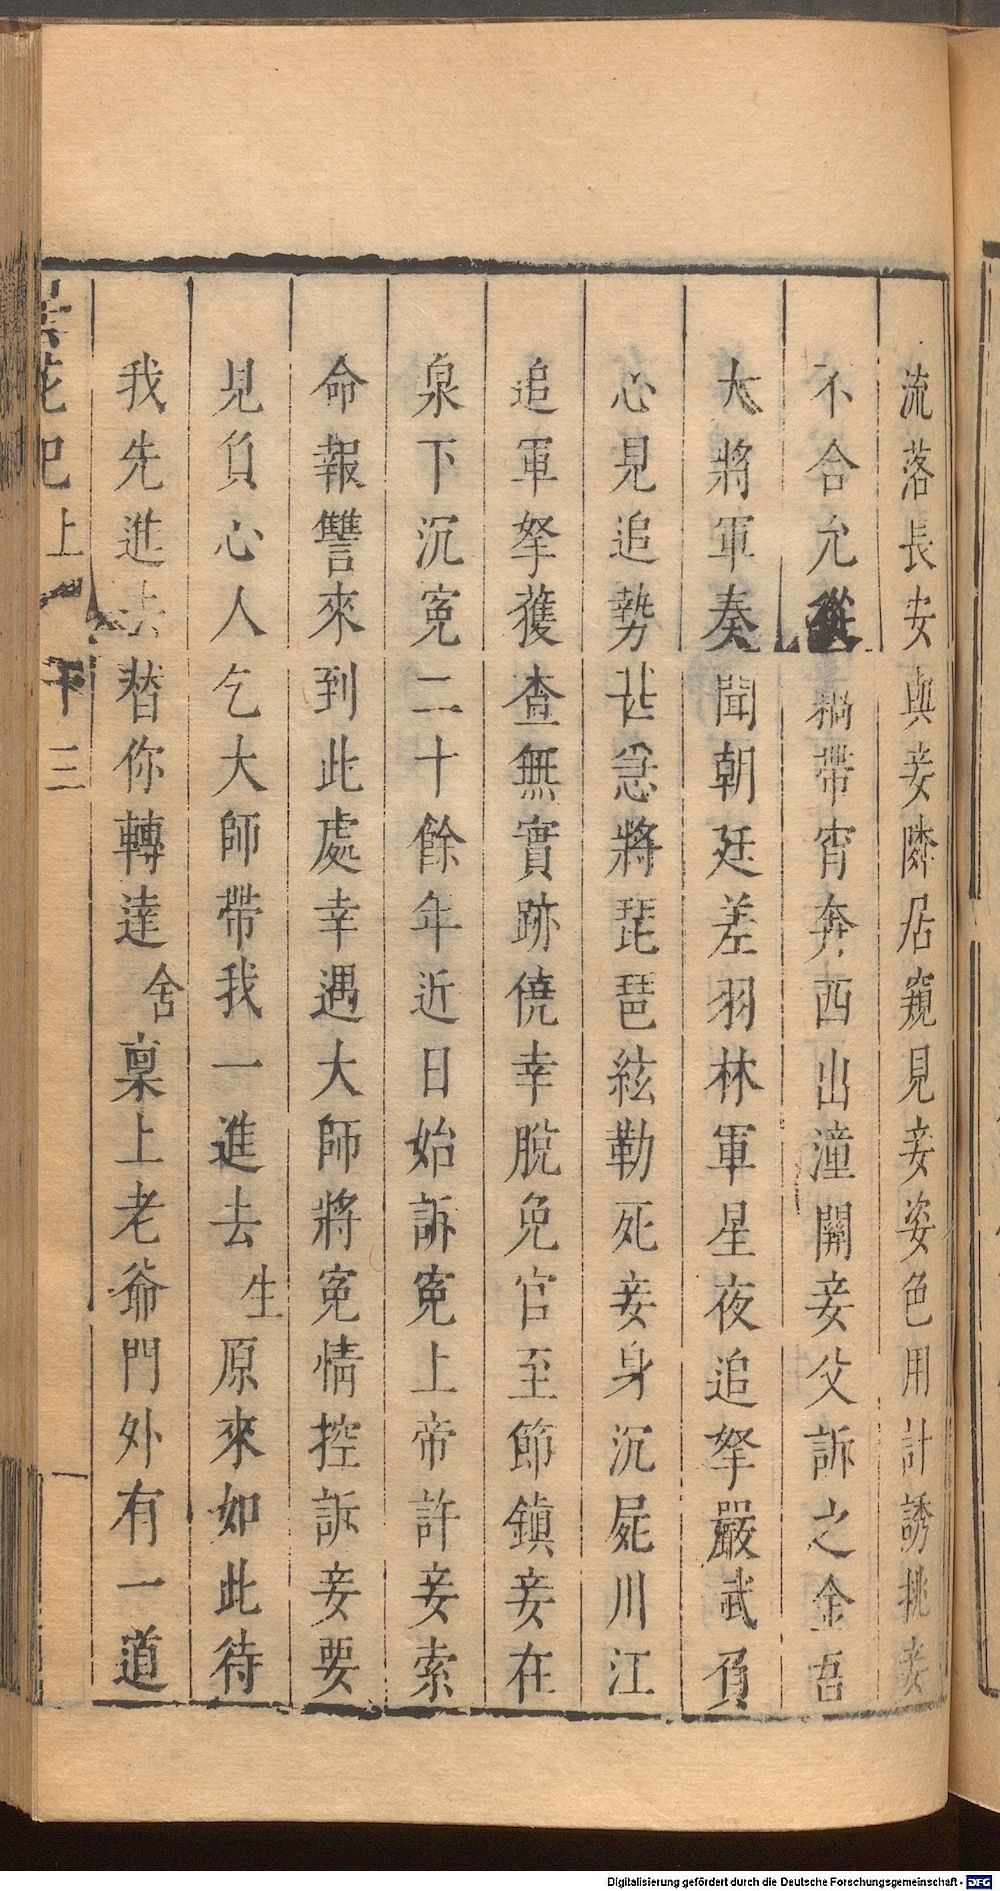 流落長安與妾隣居窺見妾姿色用計誘挑妾
不合允從攜帶宵奔西出潼關妾父訴之金吾
大將軍奏聞朝廷差羽林軍星夜追拏嚴武負
心見追勢甚急將琵琶絃勒死妾身沉屍川江
追軍拏獲查無實跡僥幸脫免官至節鎮妾在
泉下沉寃二十餘年近日始訴寃上帝許妾索
命報讐來到此處幸遇大師將寃情控訴妾要
見負心人乞大師帶我一進去生原來如此待
我先進去替你轉達舍稟上老爺門外有一道
曇花記上 下 三 一
Digitalisierung gefördert durch die Deutsche Forschungsgemeinschaft - DFG